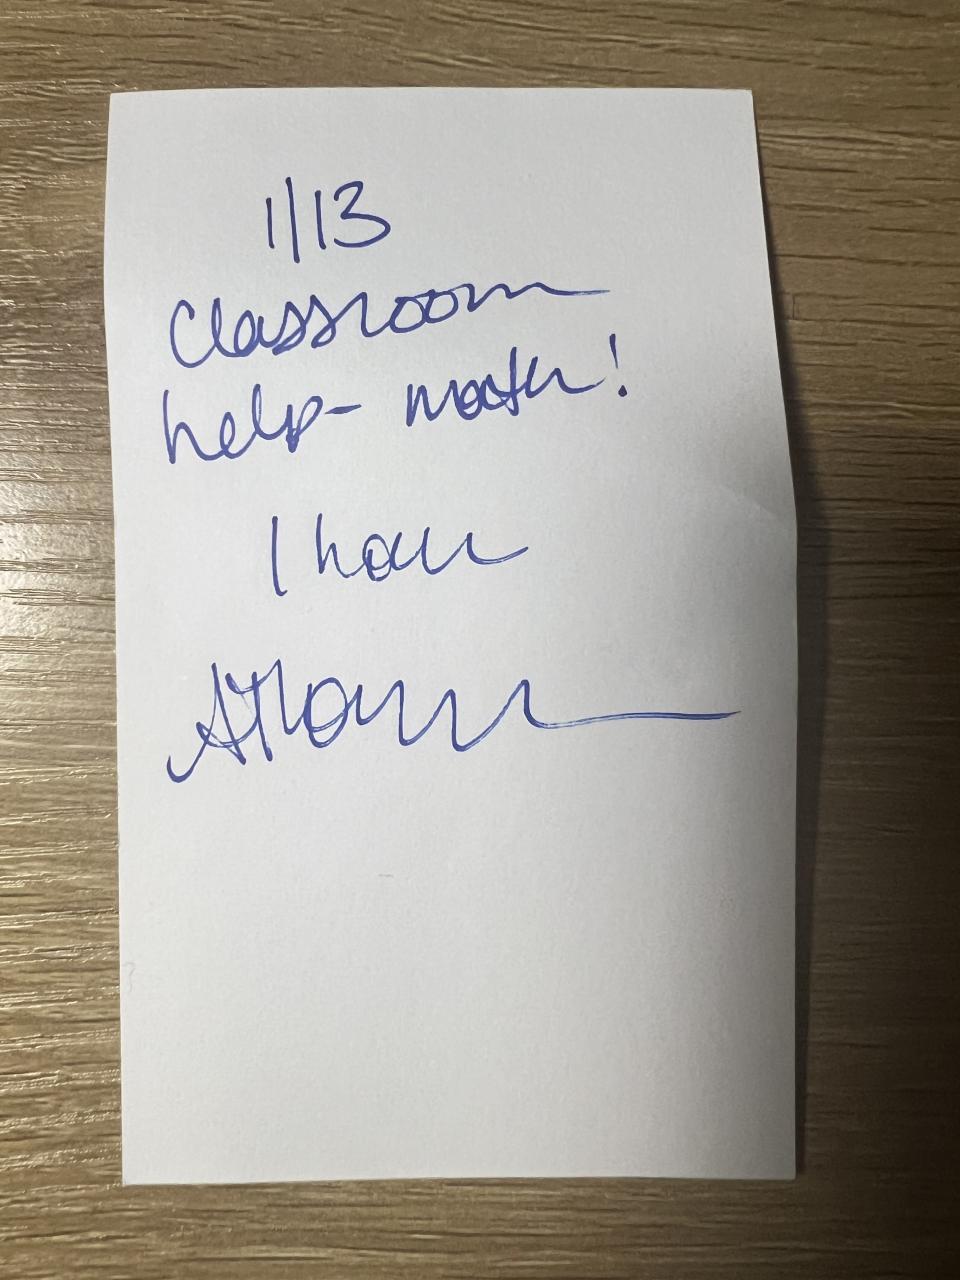 1/13
Classroom
help- math!
1 hour